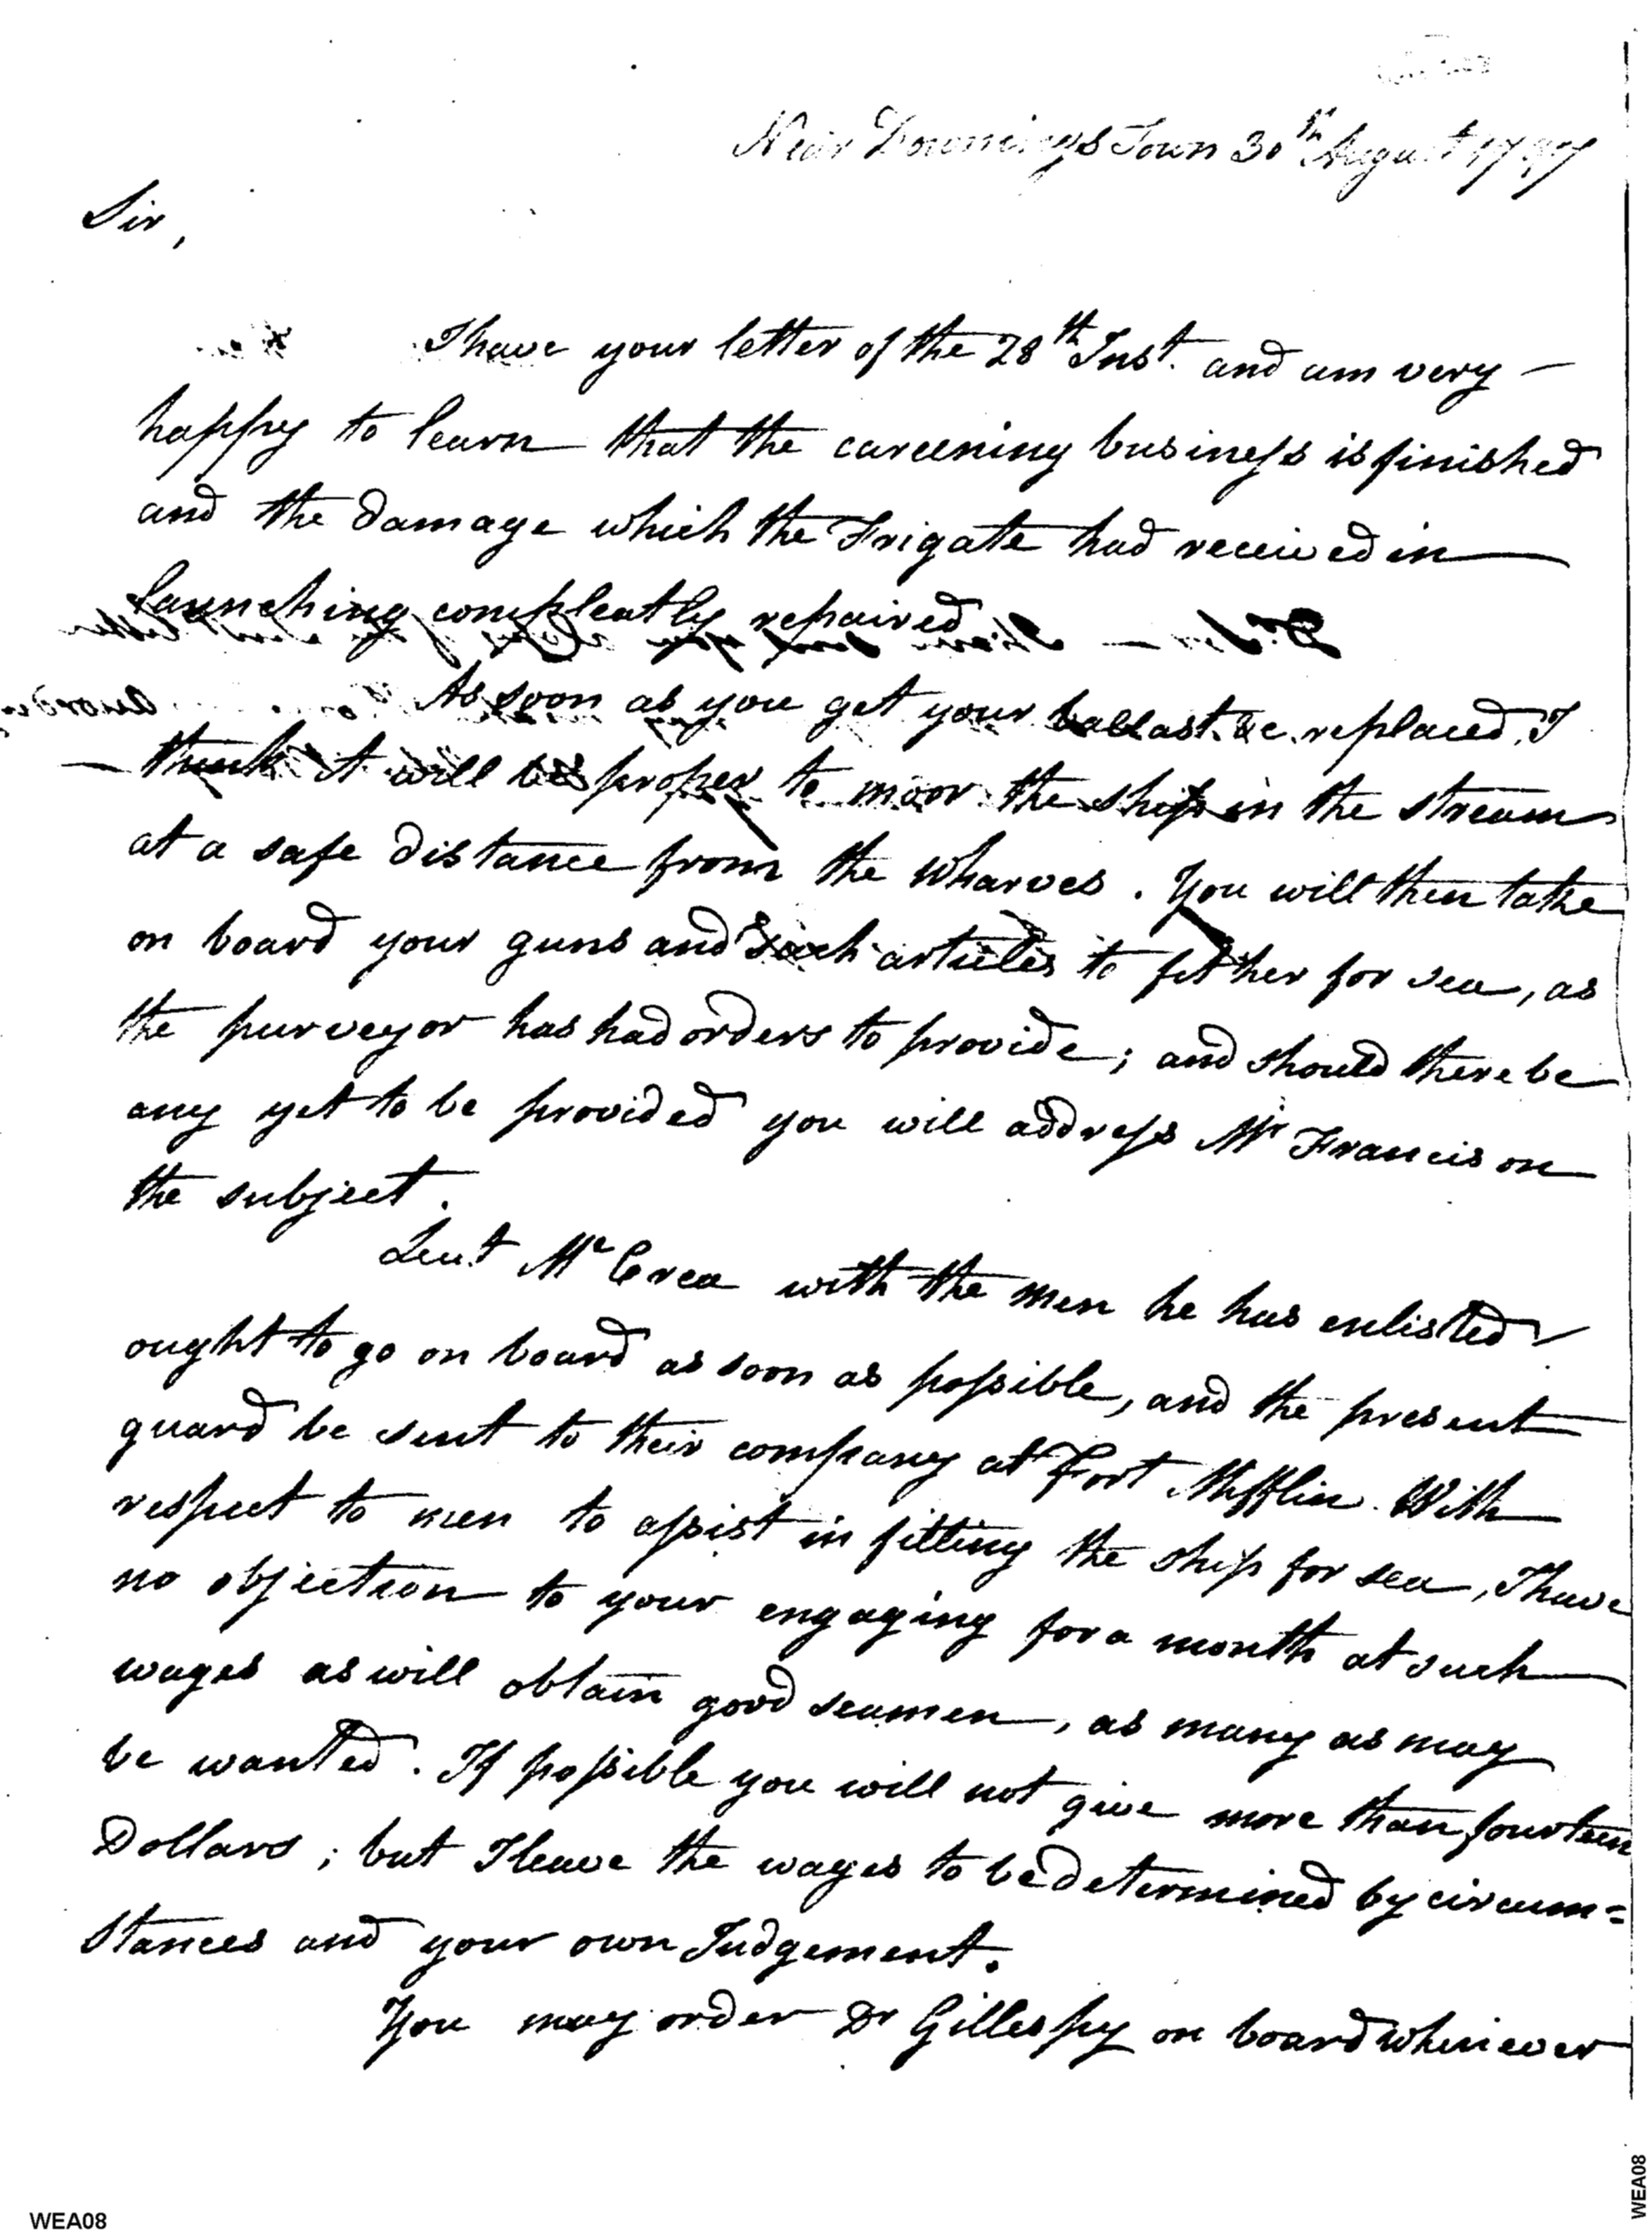 Near Downings Town 30th August 1797
Sir,
I have your letter of the 28th Inst. and am very
happy to learn that the careening business is finished
and the damage which the Frigate had received in
launching compleatly repaired
As soon as you get your ballast &c replaced, I
think it will be proper to moor the ship in the stream
at a safe distance from the wharves. You will then take
on board your guns and such articles to fit her for sea, as
the purveyor has had orders to provide; and should there be
any yet to be provided you will address Mr Francis on
the subject.
Lieut McCrea with the men he has enlisted
ought to go on board as soon as possible, and the present
guard be sent to their company at Fort Mifflin. With
respect to men to assist in fitting the ship for sea, I have
no objection to your engaging for a month at such
wages as will obtain good seamen, as many as may
be wanted. If possible you will not give more than fourteen
Dollars; but I leave the wages to be determined by circum=
stances and your own Judgement.
You may order Dr Gillespy on board whenever
WEA08
WEA08